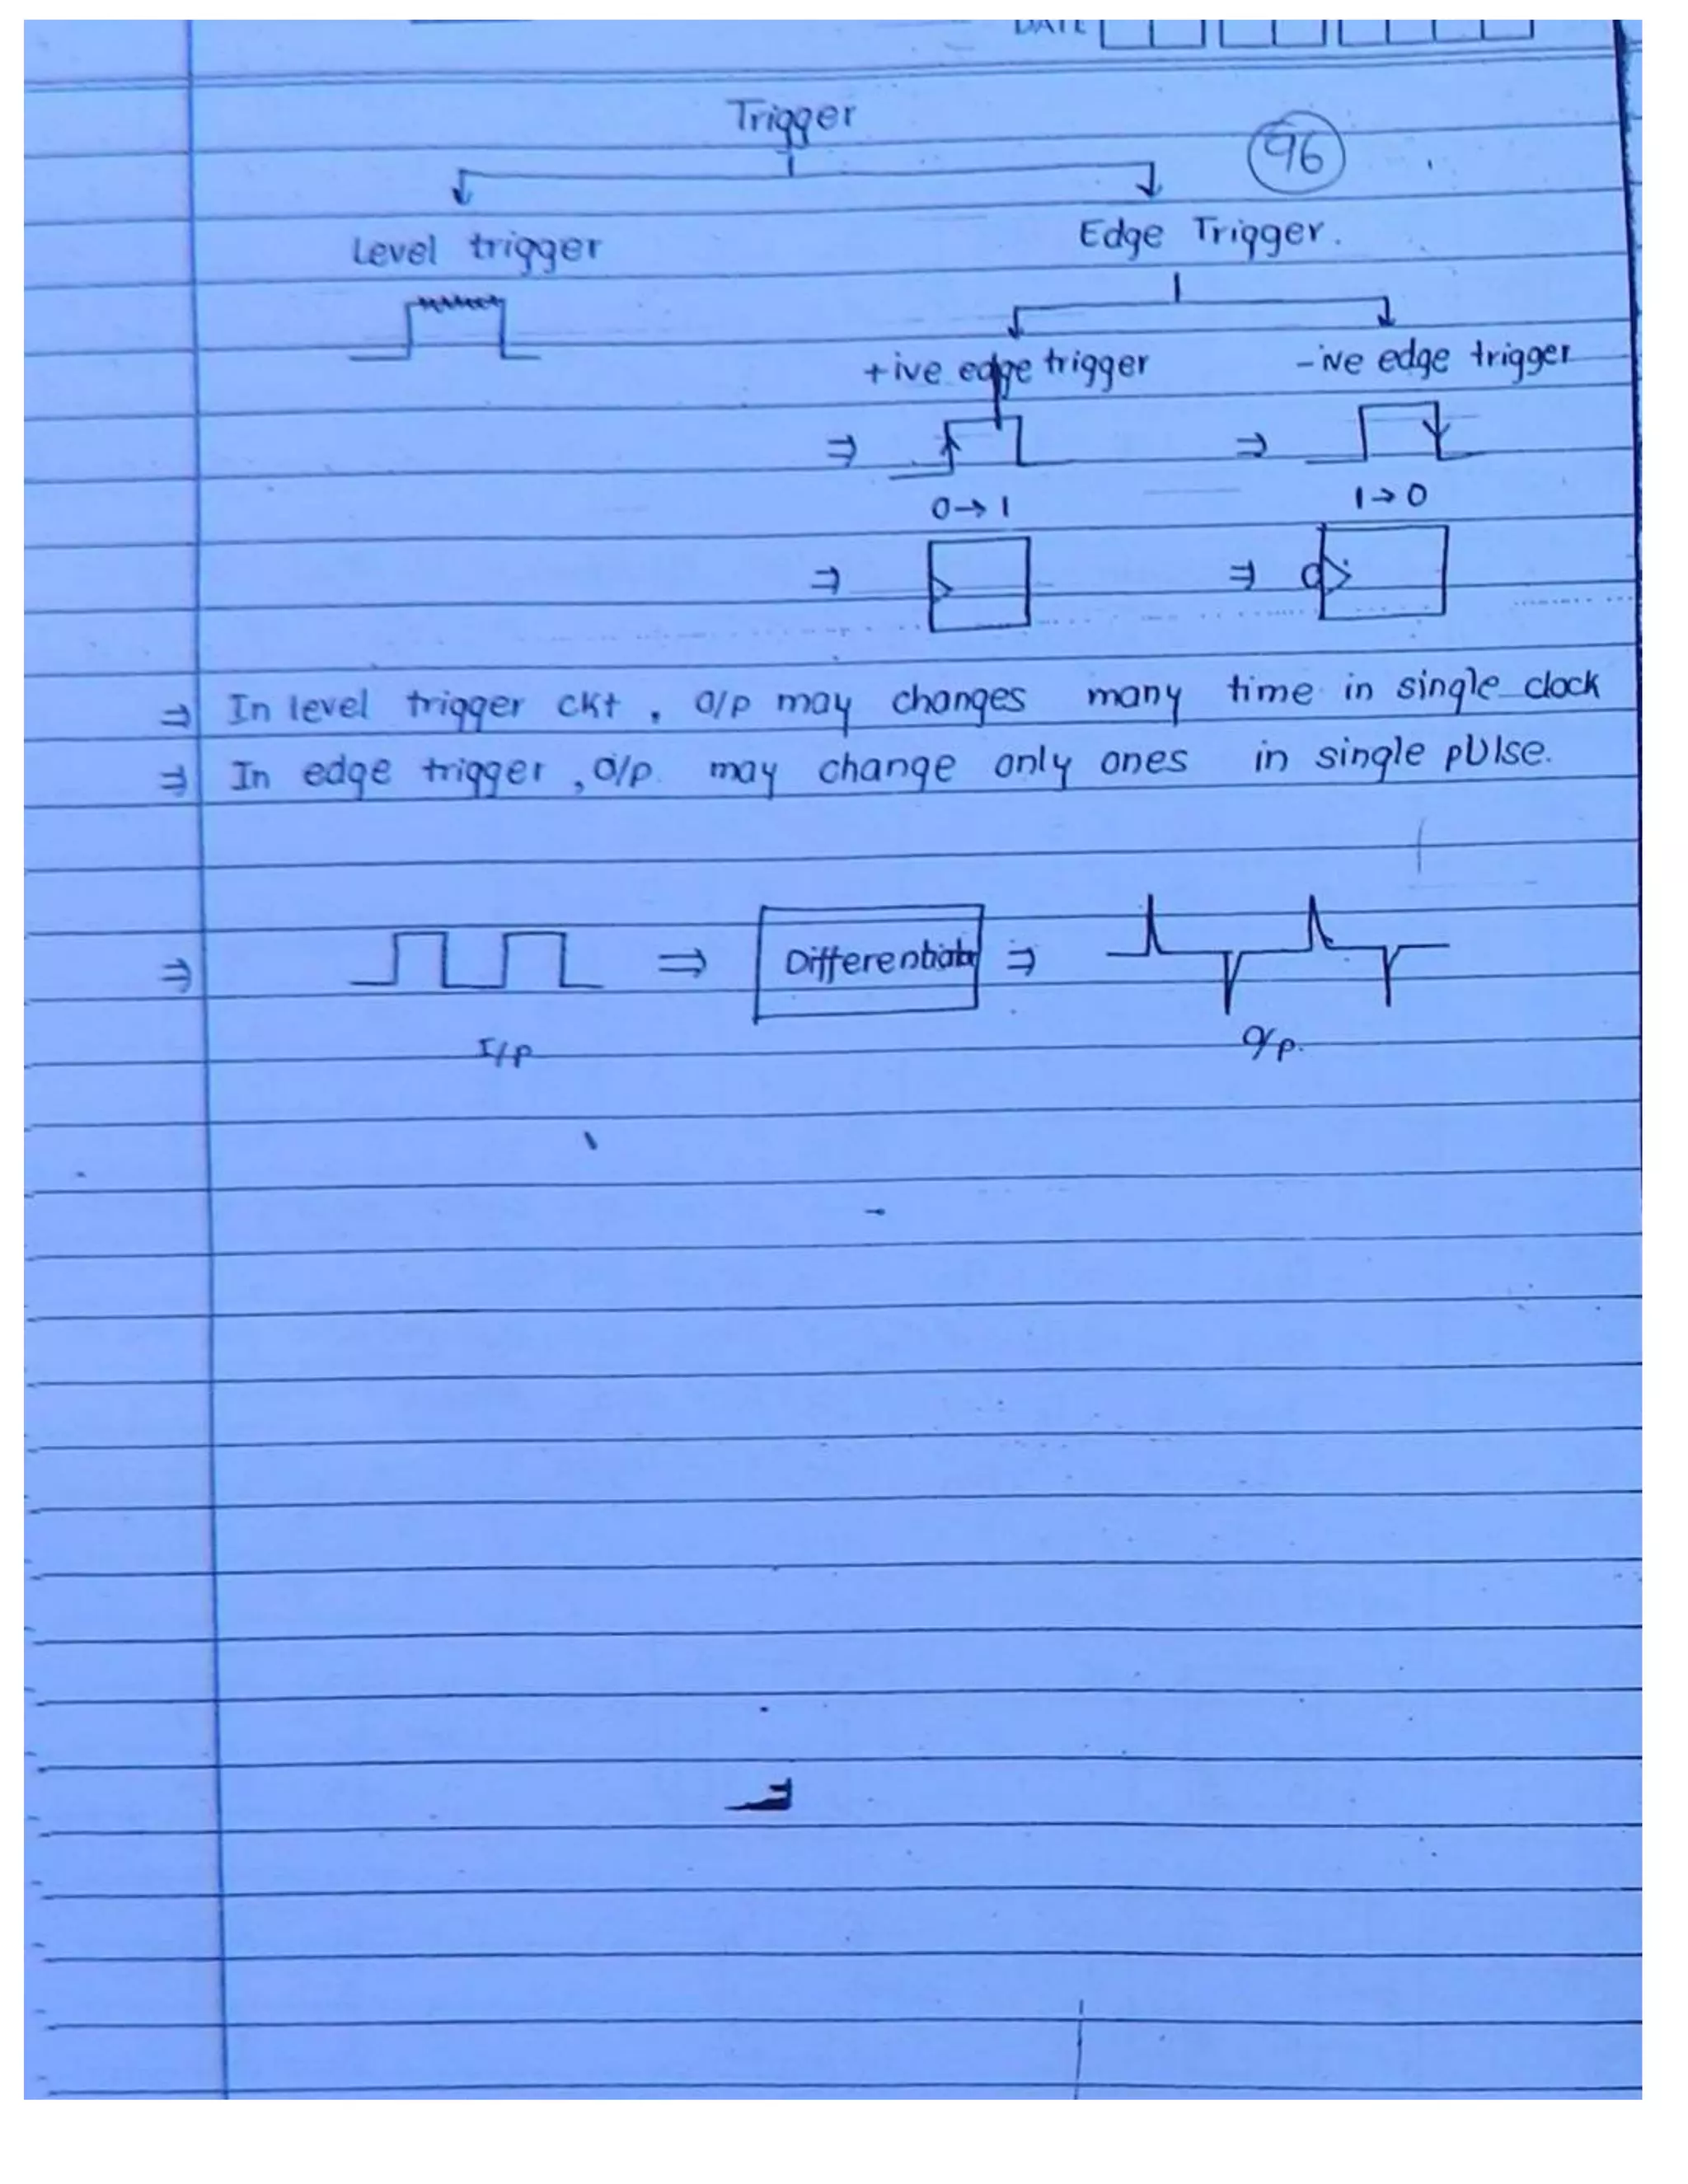 DATE
Trigger
96
Level trigger
Edge Trigger.
+ive edge trigger
-ive edge trigger
⇒
⇒
0→1
1→0
⇒
⇒
⇒ In level trigger ckt, o/p may changes many time in single clock
⇒ In edge trigger, o/p may change only ones in single pulse.
⇒ ⇒ Differentiator ⇒
I/p
o/p.